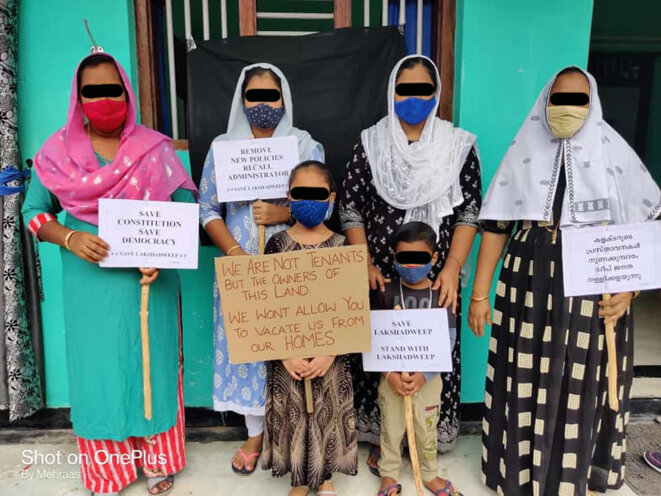 SAVE
CONSTITUTION
SAVE
DEMOCRACY
# # SAVE LAKSHADWEEP # #
REMOVE
NEW POLICIES
RECALL
ADMINISTRATOR
# # SAVE LAKSHADWEEP
WE ARE NOT TENANTS
BUT THE OWNERS OF
THIS LAND
WE WONT ALLOW YOU
TO VACATE US FROM
OUR HOMES
SAVE
LAKSHADWEEP
STAND WITH
LAKSHADWEEP
കളക്ടറുടെ
പ്രസ്താവനകൾ
നുണക്കൂമ്പാരം
ദ്വീപ് ജനത
തള്ളിക്കളയുന്നു
Shot on OnePlus
By Mehraas